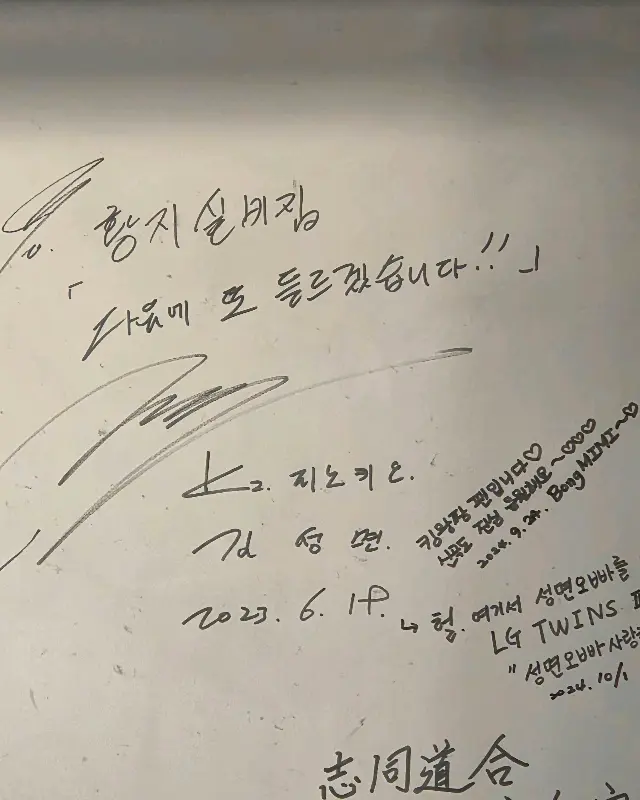 황지실비집
「다음에 또 들르겠습니다!!」
K2. 지노키오.
김성면.
2023. 6. 18.
킹왕짱 팬입니다♡
신곡도 전부 응원해요~♡♡♡
2024. 9. 24. Bong MIMI~♡
↳ 헐. 여기서 성면오빠를
LG TWINS
"성면오빠 사랑
2024. 10/1
志同道合